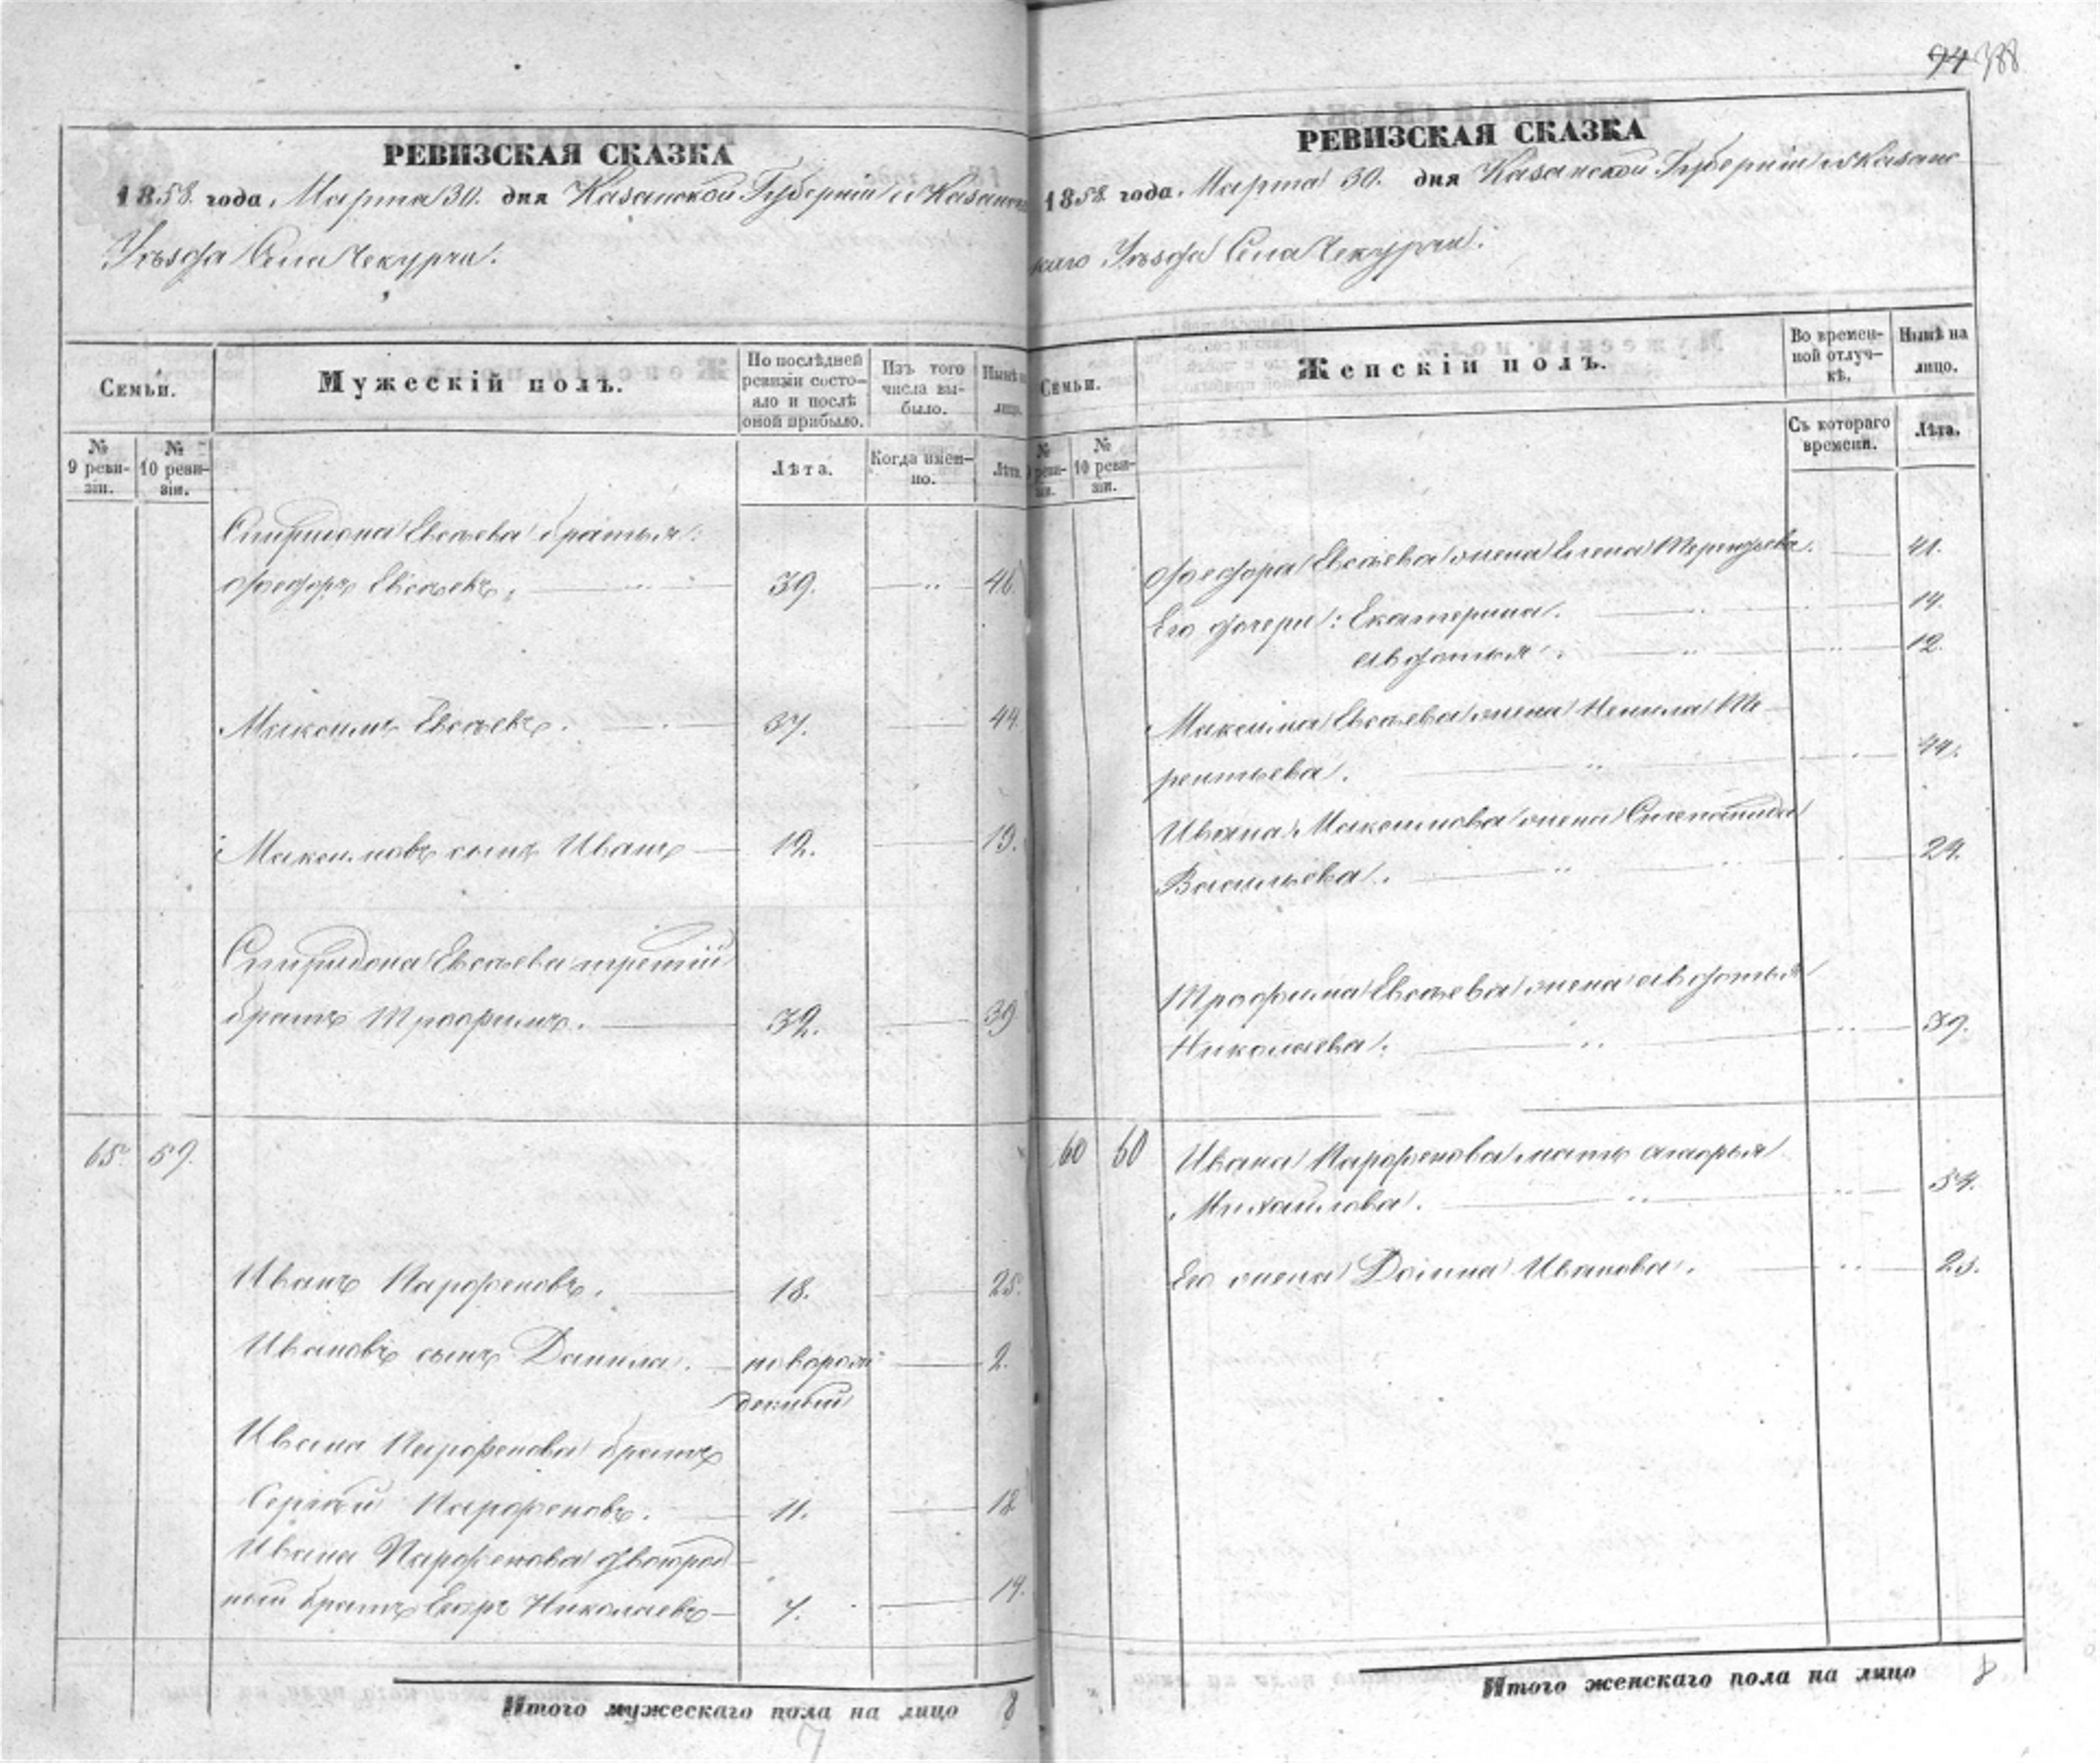 РЕВИЗСКАЯ СКАЗКА
1858. года. Марта 30. дня Казанской Губерніи и Казанск
Уѣзда Села Чекурчи.
Семьи.
Мужескій полъ.
По послѣдней ревизіи состояло и послѣ оной прибыло.
Изъ того числа выбыло.
Нынѣ на лицо.
№ 9 ревизіи.
№ 10 ревизіи.
Лѣта.
Когда именно.
Лѣта.
Спиридона Евсѣева братья:
Ѳедоръ Евсѣевъ. 39. 46.
Максимъ Евсѣевъ. 37. 44.
Максимовъ сынъ Иванъ 12. 19.
Спиридона Евсѣева третій
братъ Трофимъ. 32. 39
65. 59.
Иванъ Парфеновъ. 18. 25.
Ивановъ сынъ Данила. новорож 2.
денный
Ивана Парфенова братъ
Сергѣй Парфеновъ. 11. 18
Ивана Парфенова двоюрод
ный братъ Егоръ Николаевъ 7. 14.
Итого мужескаго пола на лицо 8
94 388
РЕВИЗСКАЯ СКАЗКА
1858 года. Марта 30. дня Казанской Губерніи и Казанс
каго Уѣзда Села Чекурчи.
Семьи.
Женскій полъ.
Во временной отлучкѣ.
Нынѣ на лицо.
№ 9 ревизіи.
№ 10 ревизіи.
Съ котораго времени.
Лѣта.
Ѳедора Евсѣева жена Елена 41.
Его дочери: Екатерина. 14.
Авдотья. 12.
Максима Евсѣева жена Ненила Те
рентьева. 44.
Ивана Максимова жена Степанида
Васильева. 24.
Трофима Евсѣева жена Авдотья
Николаева. 39.
60 60
Ивана Парфенова мать Марья
Михайлова. 54.
Его жена Домна Иванова. 25.
Итого женскаго пола на лицо 8